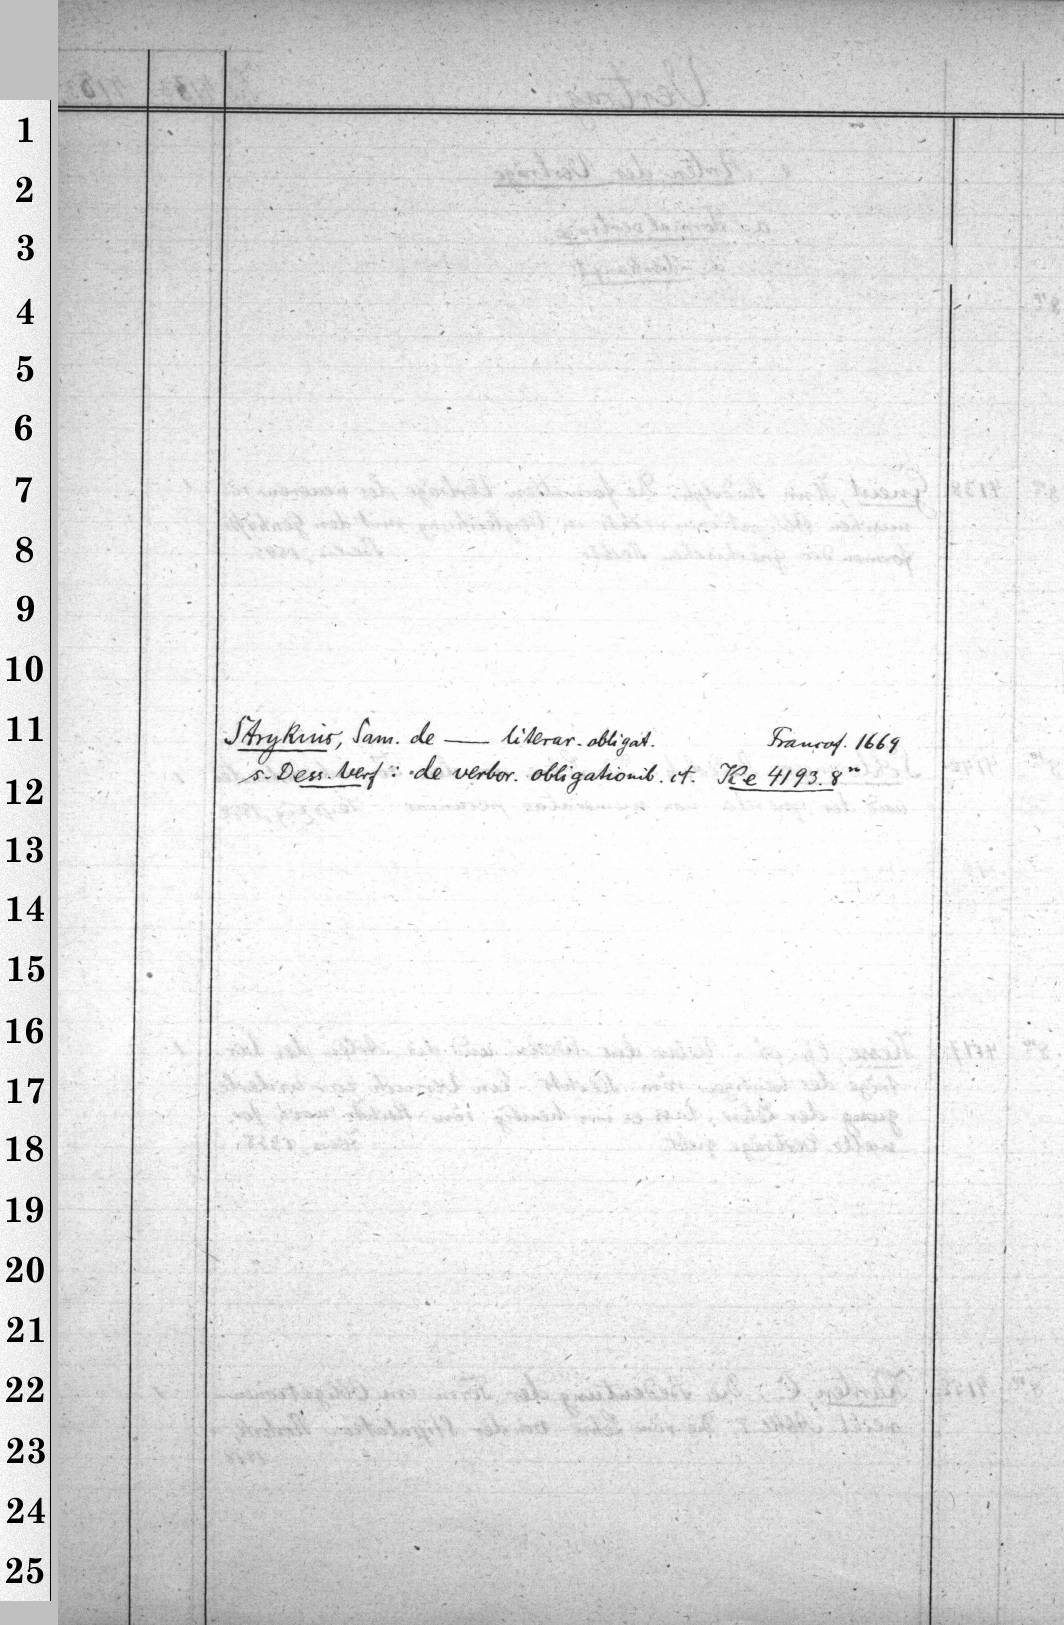 1
2
3
4
5
6
7
8
9
10
11
Strykius, Sam. de — literar. obligat. Francof. 1669
s. Dess. Verf: de verbor. obligationib. ct. Ke 4193. 8°
12
13
14
15
16
17
18
19
20
21
22
23
24
25